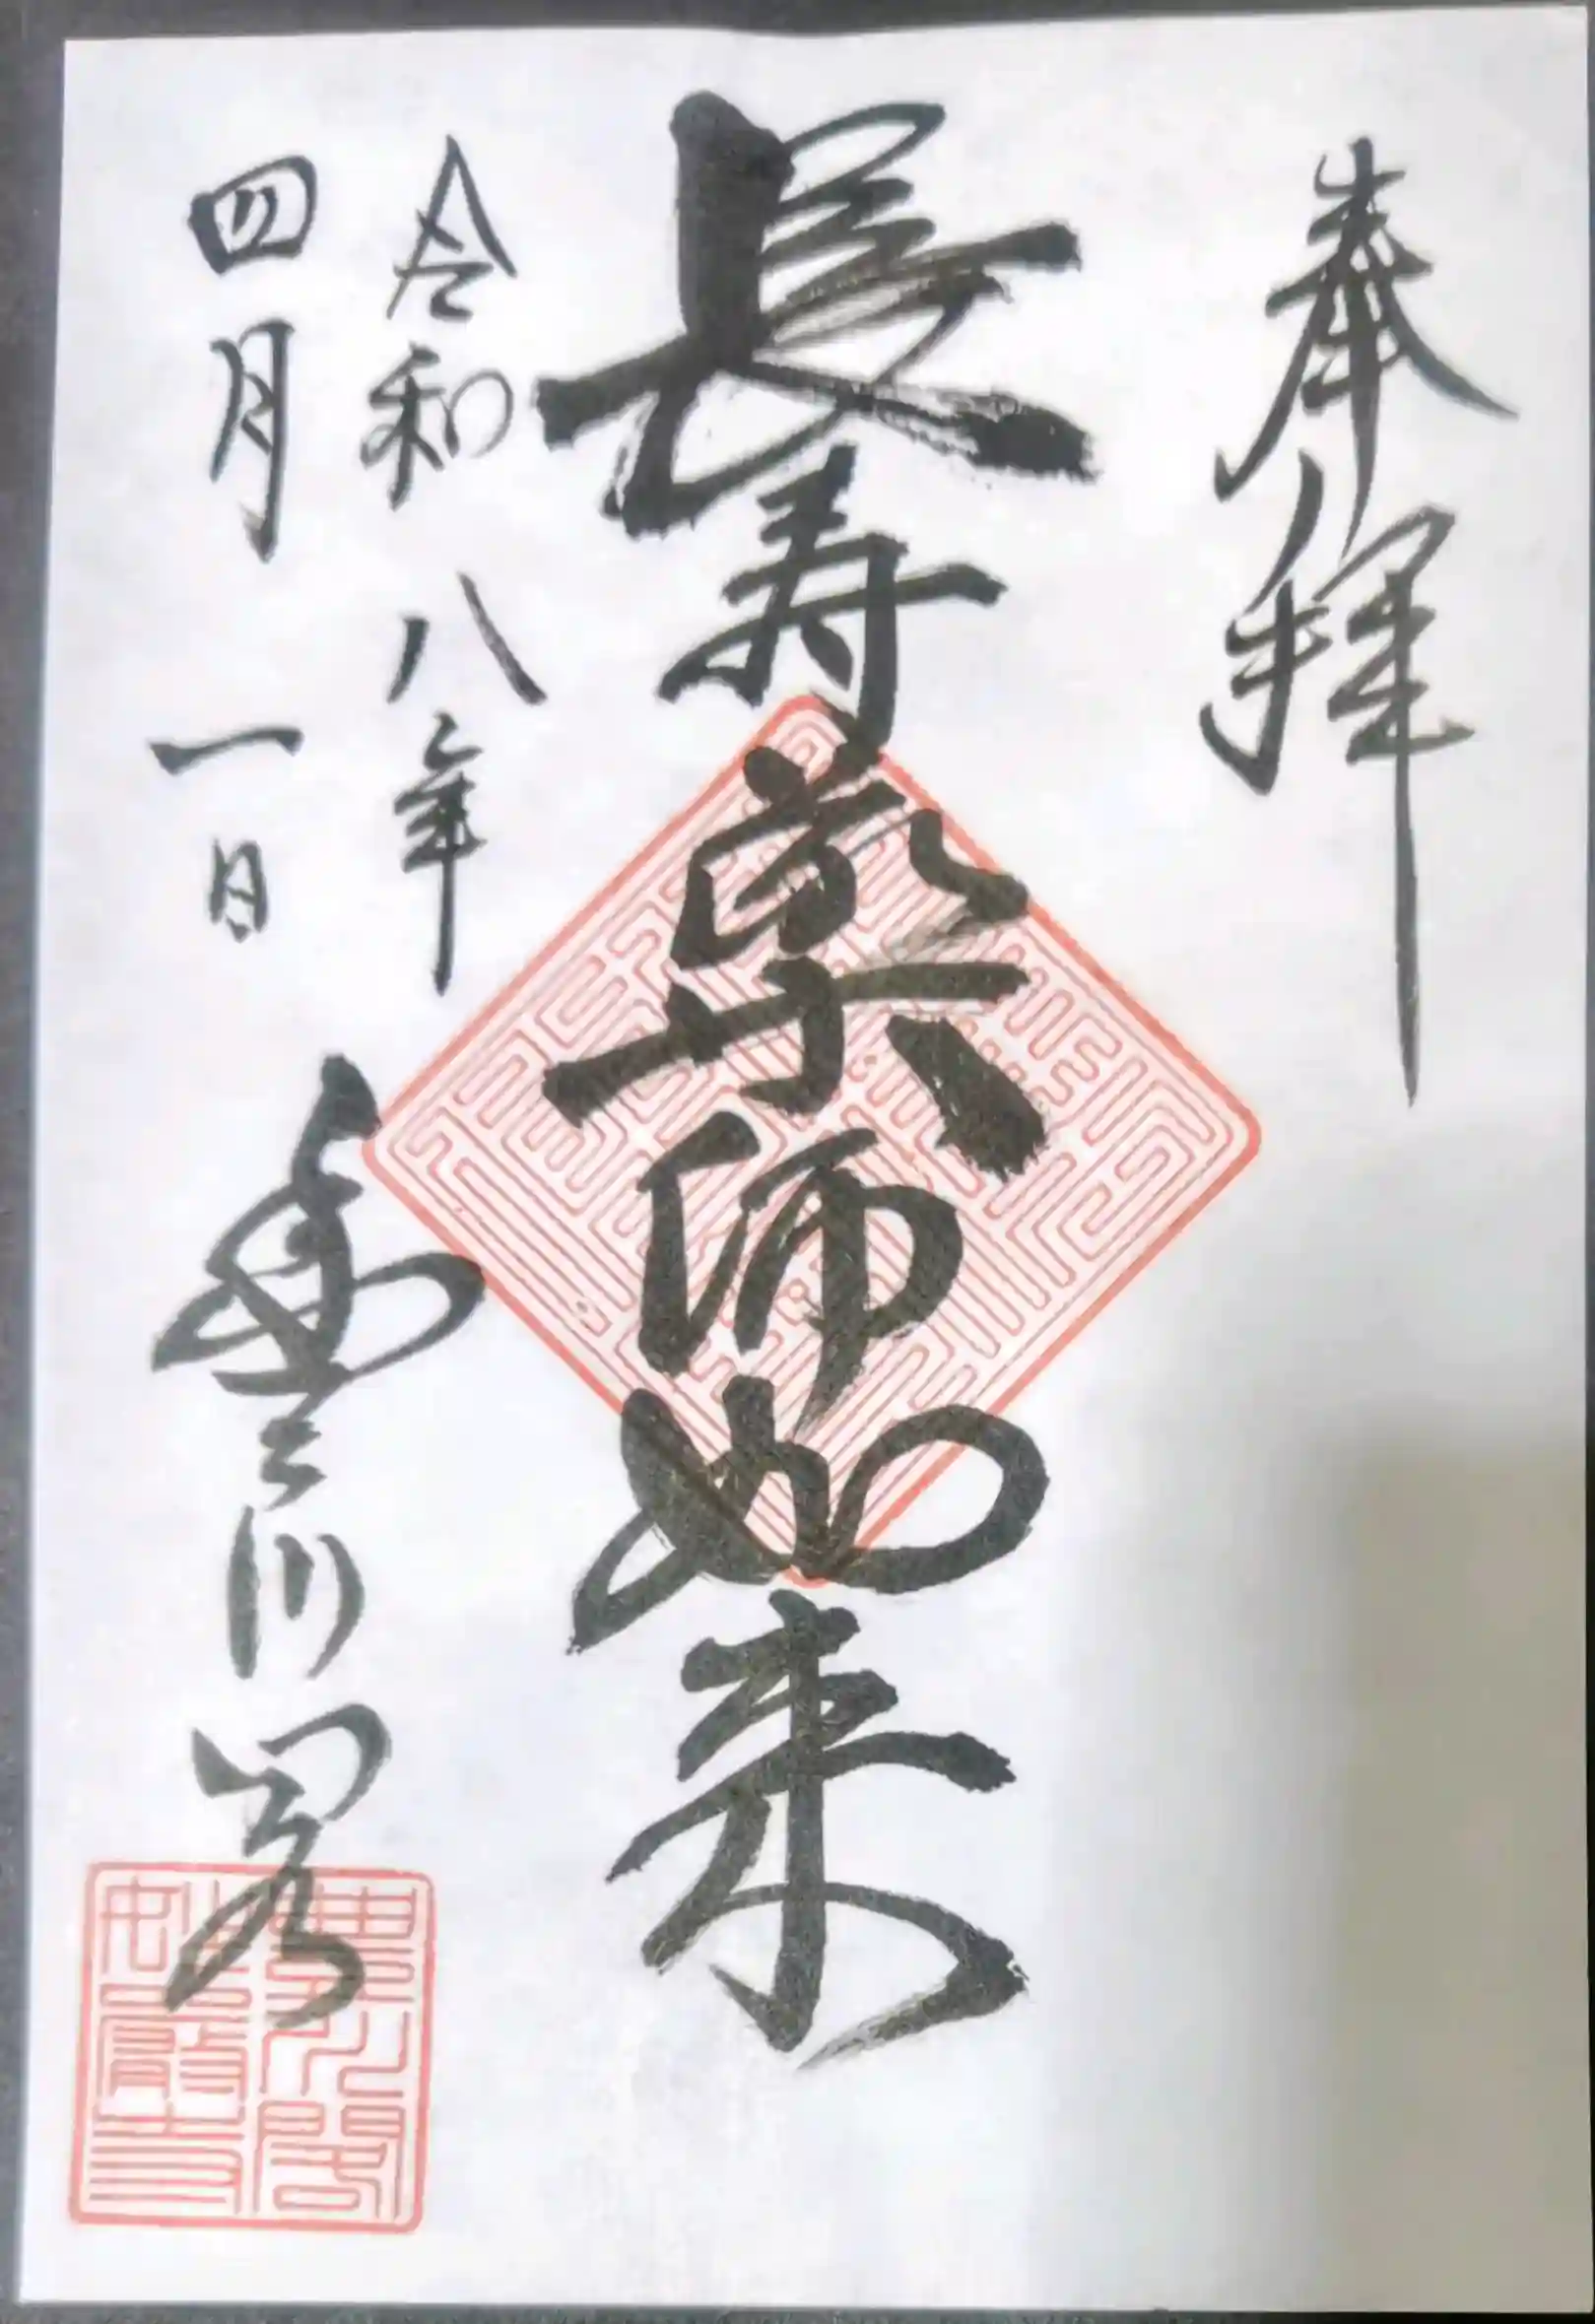 奉拝
長寿薬師如来
令和八年
四月一日
豊川閣